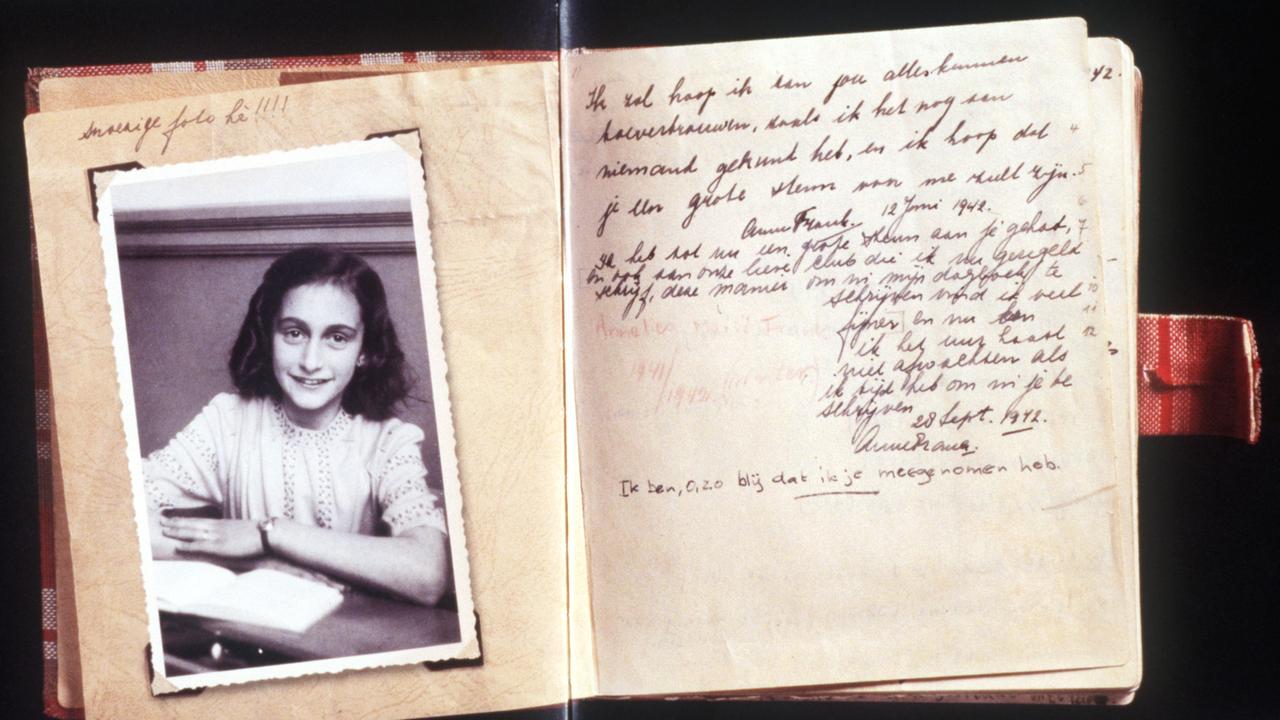 snoezige foto hè!!!!
Ik zal hoop ik aan jou alles kunnen
toevertrouwen, zoals ik het nog aan
niemand gekund heb, en ik hoop dat
je een grote steun voor me zult zijn.
Anne Frank. 12 Juni 1942.
Ik heb tot nu een grote steun aan je gehad,
en ook aan onze lieve club die ik nu geregeld
schrijf, deze manier om in mijn dagboek te
schrijven vind ik veel
fijner en nu kan
ik het uur haast
niet afwachten als
ik tijd heb om in je te
schrijven.
28 Sept. 1942.
Anne Frank.
Annelies Marie Frank
1941/
1942. (Winter)
Ik ben, o, zo blij dat ik je meegenomen heb.
42.
4
5
6
7
10
11
12